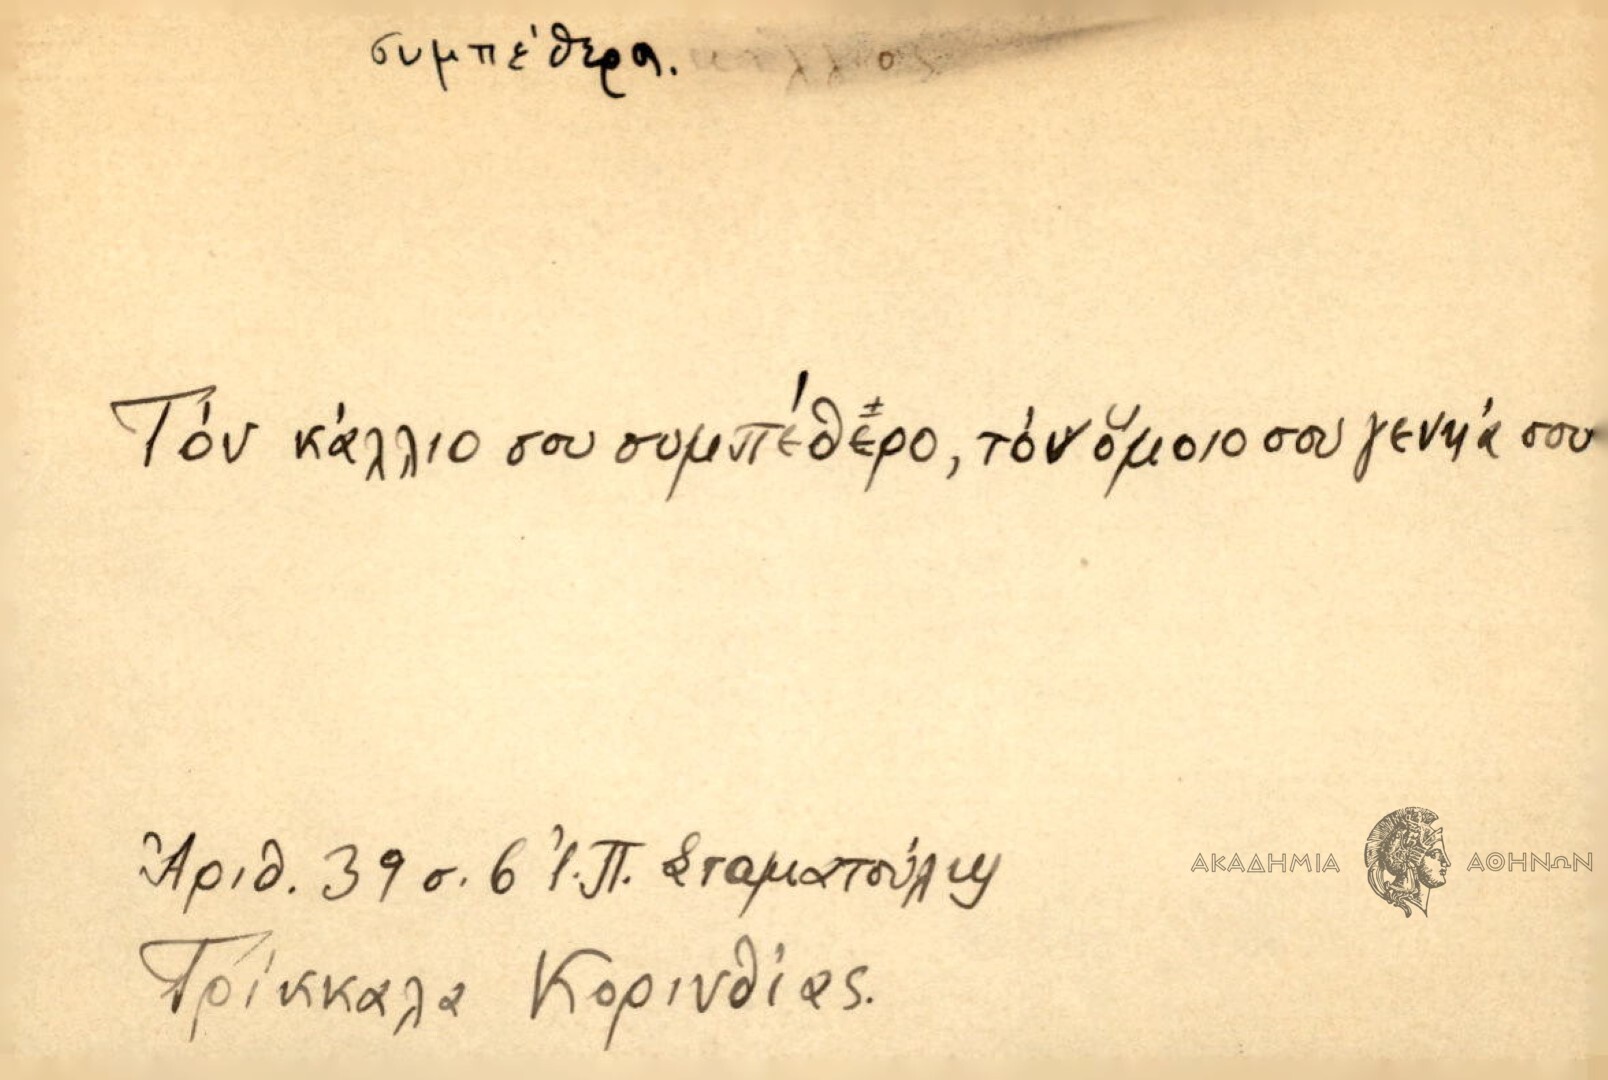 συμπέθερα.
Τόν κάλλιο σου συμπέθερο, τόν ὅμοιο σου γενηά σου
Ἀριθ. 39 σ. 6 Ἰ. Π. Σταματούλης
Τρίκκαλα Κορινθίας.
ΑΚΑΔΗΜΙΑ ΑΘΗΝΩΝ